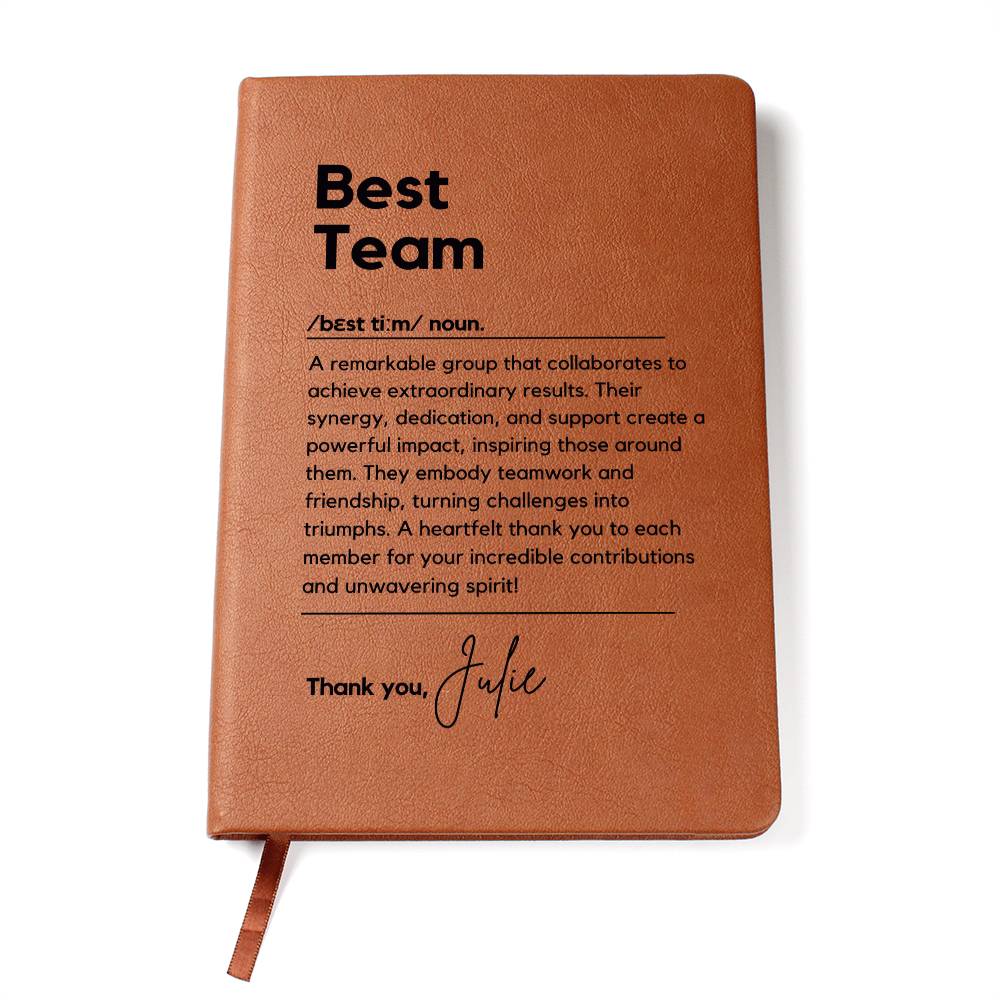 Best
Team
/bɛst tiːm/ noun.
A remarkable group that collaborates to
achieve extraordinary results. Their
synergy, dedication, and support create a
powerful impact, inspiring those around
them. They embody teamwork and
friendship, turning challenges into
triumphs. A heartfelt thank you to each
member for your incredible contributions
and unwavering spirit!
Thank you, Julie